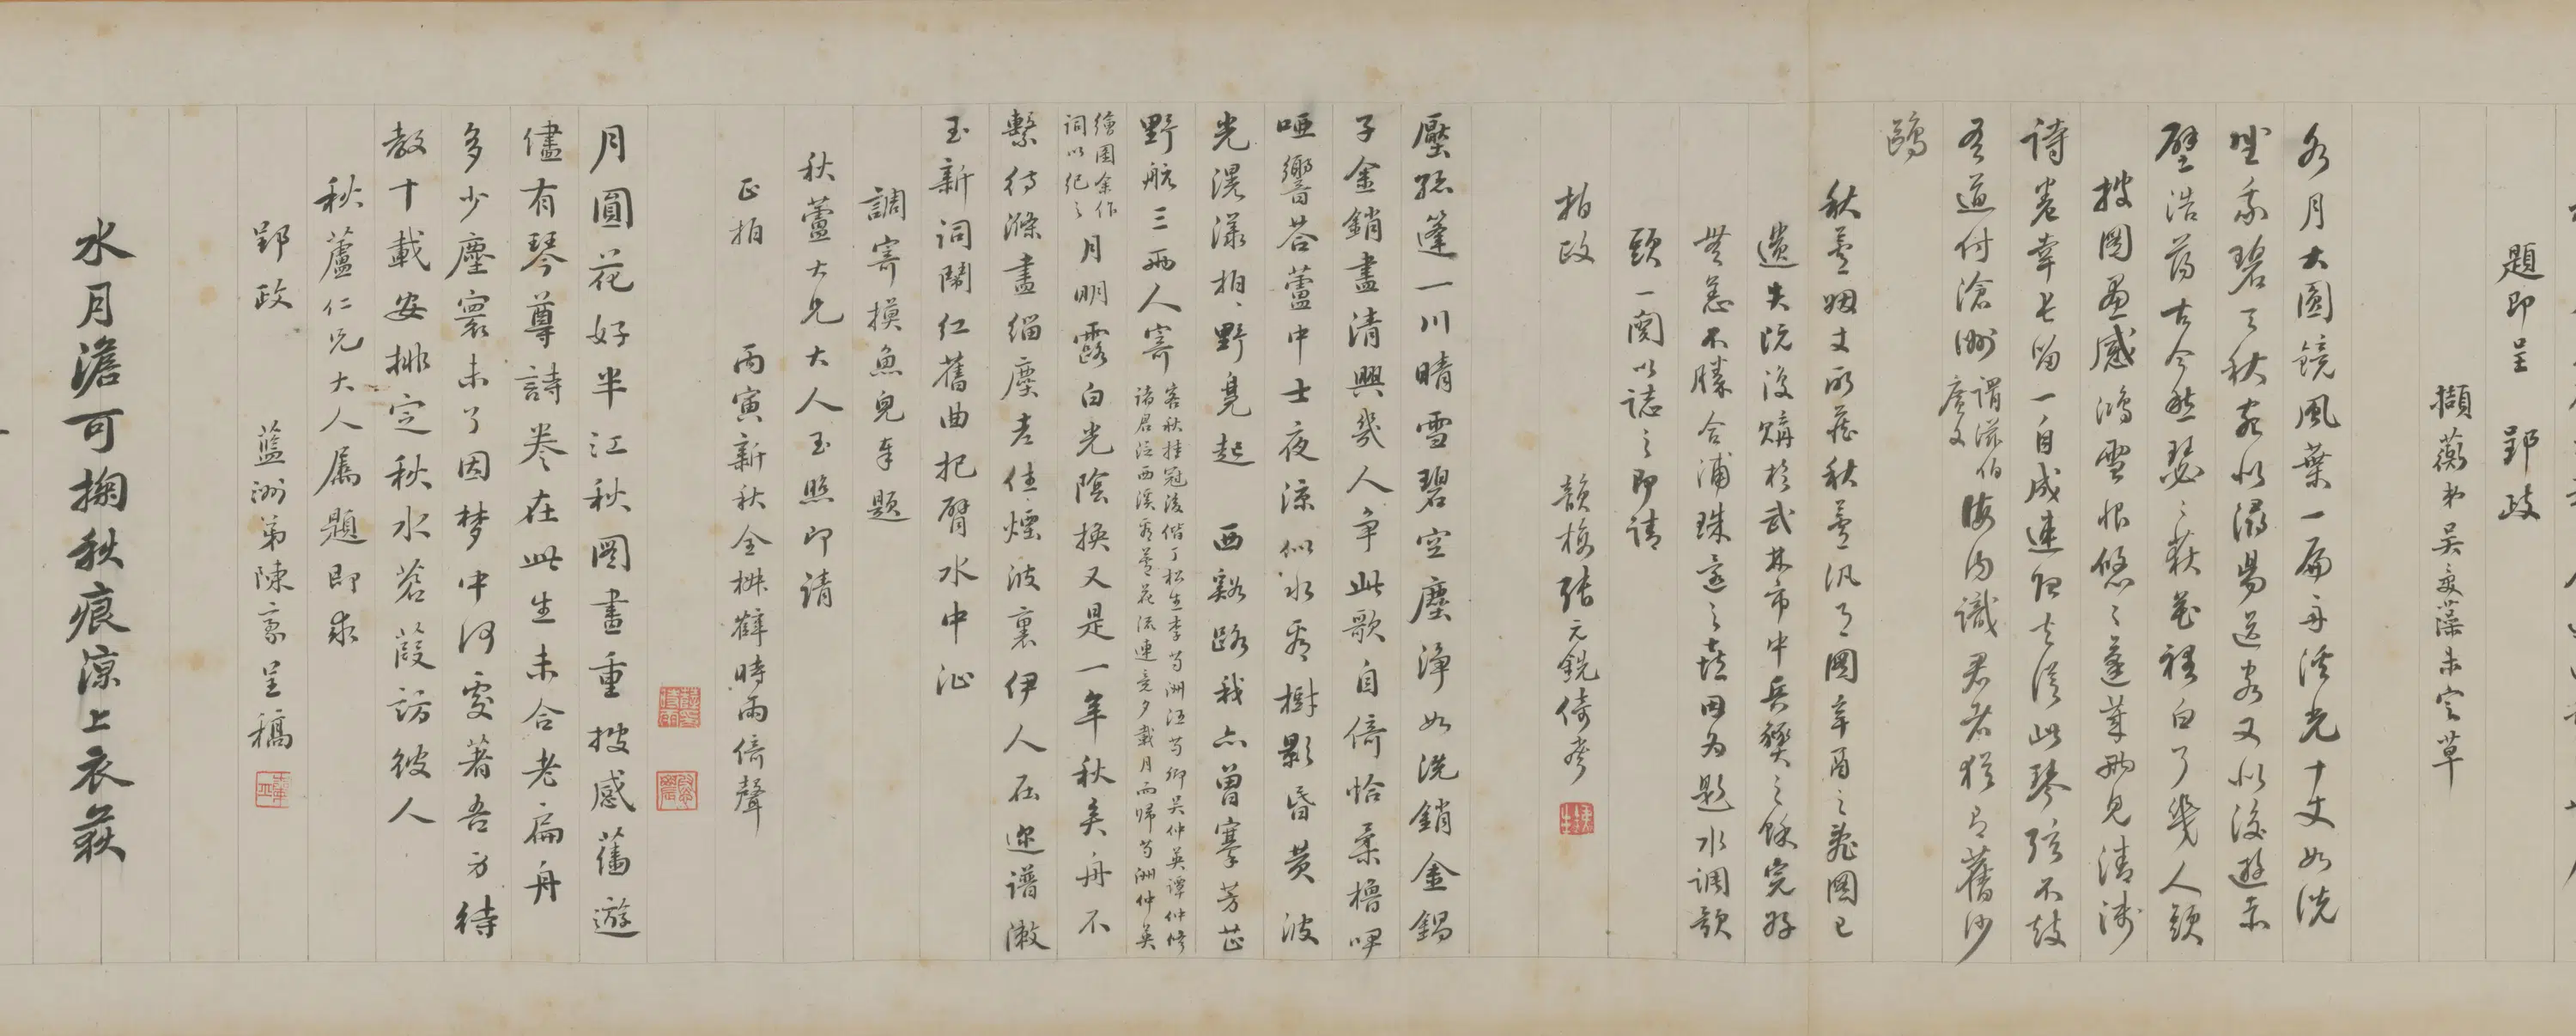 題即呈 郢政
擷蘅弟吴 藻未定草
水月大圓鏡風葉一扁舟溪光十丈如洗
坐我碧天秋宛似潯陽送客又似後遊赤
壁浩蕩古今愁瑟瑟荻花裡白了幾人頭
披圖畫感鴻雪恨悠悠蓬萊 見清淺
詩卷幸長留一自成連歸去從此琴弦不鼓
吾道付滄洲 謂滋伯廣文 後 識君者猶有舊沙
鷗
秋蘆姻丈所藏秋蘆汎月圖辛酉之亂圖已
遺失既復購於武林市中兵燹之餘完好
無恙不勝合浦珠還之喜因為題水調歌
頭一闋以誌之即請
拍政 韻梅張元銑倚聲
壓孤篷一川晴雪碧空塵淨如洗銷金鍋
子金銷盡清興幾人爭此歌自倚恰柔櫓咿
啞響答蘆中士夜涼似水看樹影昏黄波
光滉漾拍拍野鳧起 西谿路我亦曾搴芳芷
野航三兩人寄 客秋挂冠後偕丁松生李芍洲江芍卿吴仲英譚仲修
諸君泛西溪看蘆花流連竟夕載月而歸芍洲仲英
繪圖余作
詞以紀之 月明露白光陰換又是一年秋矣舟不
繫待滌盡緇塵老住煙波裏伊人在邇譜漱
玉新詞鬧红舊曲把臂水中沚
調寄摸魚兒奉題
秋蘆大兄大人玉照即請
正拍 丙寅新秋仝楙 時雨倚聲
月圓花好半江秋圖畫重披感舊遊
儘有琴尊詩卷在此生未合老扁舟
多少塵寰未了因梦中何處著吾身待
教十載安排定秋水蒼葭訪彼人
秋蘆仁兄大人屬題即求
郢政 藍洲弟陳豪呈稿
水月澹可掬秋痕凉上衣荻